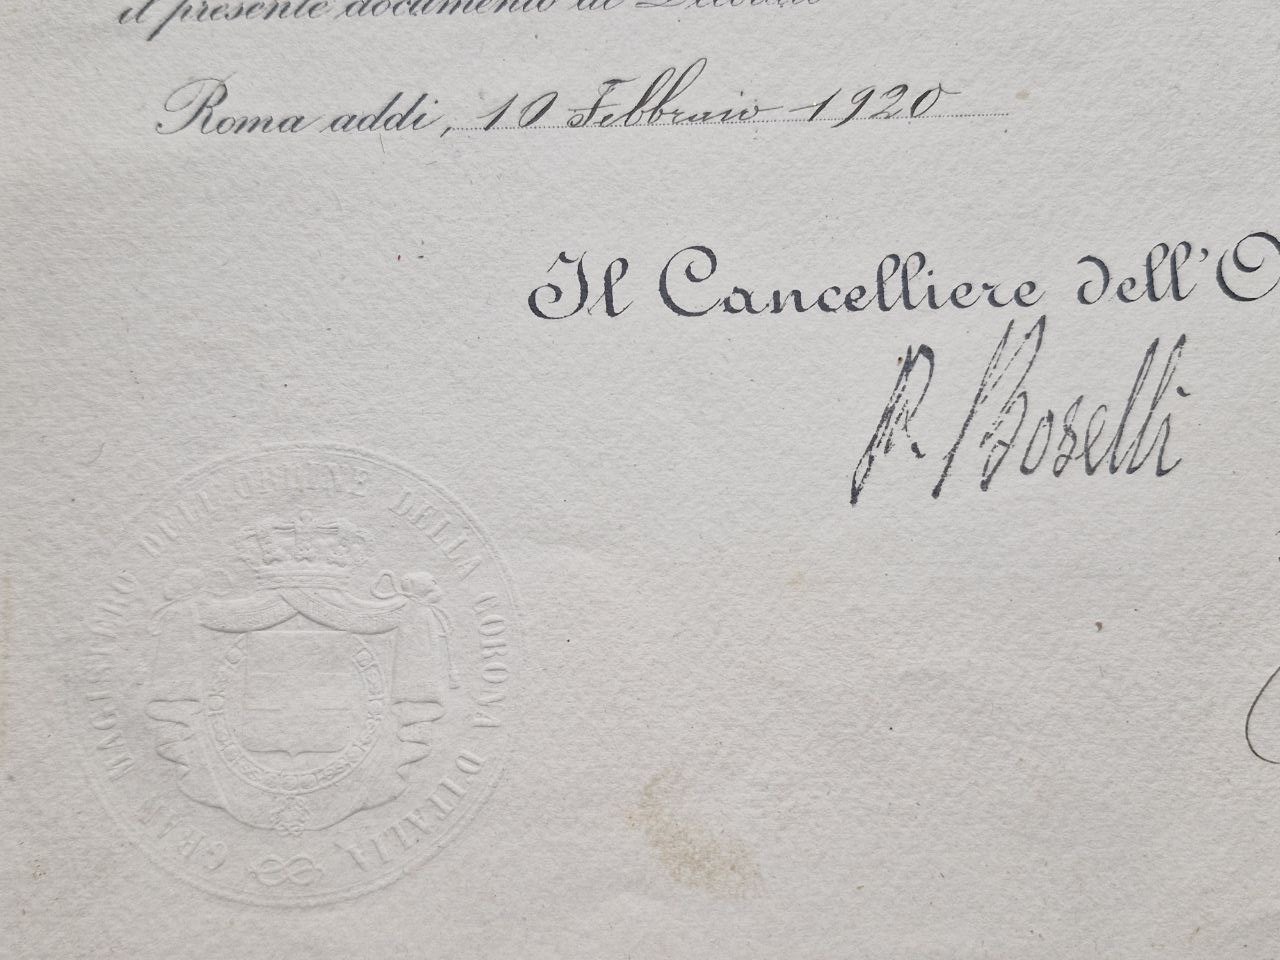 il presente documento di
Roma addi, 10 Febbraio 1920
Il Cancelliere dell'O
P. Boselli
GRAN MAGISTERO DELL'ORDINE DELLA CORONA D'ITALIA